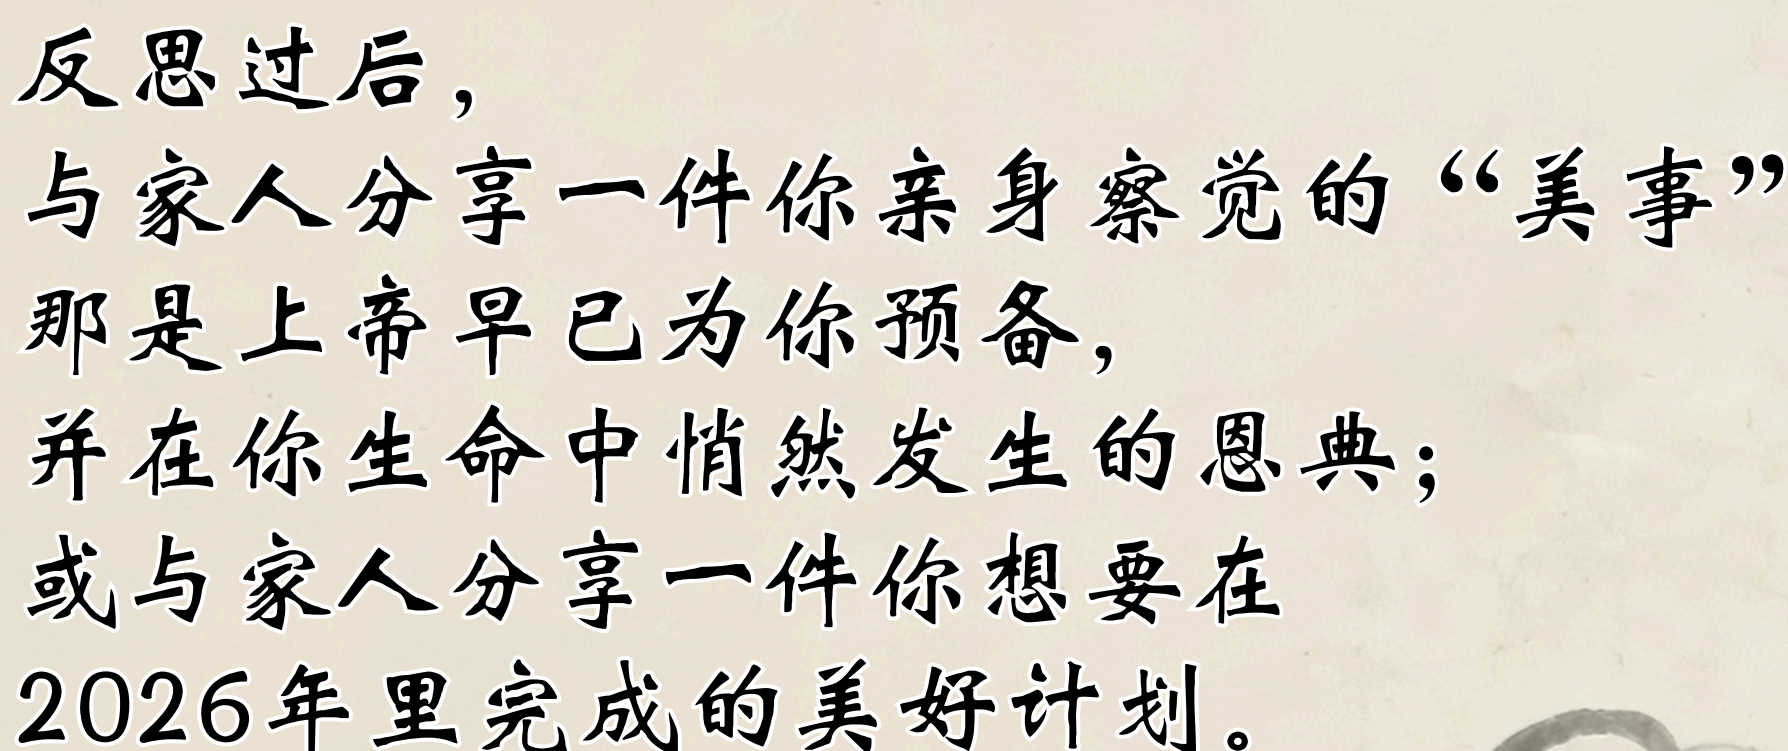 反思过后，
与家人分享一件你亲身察觉的“美事”
那是上帝早已为你预备，
并在你生命中悄然发生的恩典；
或与家人分享一件你想要在
2026年里完成的美好计划。